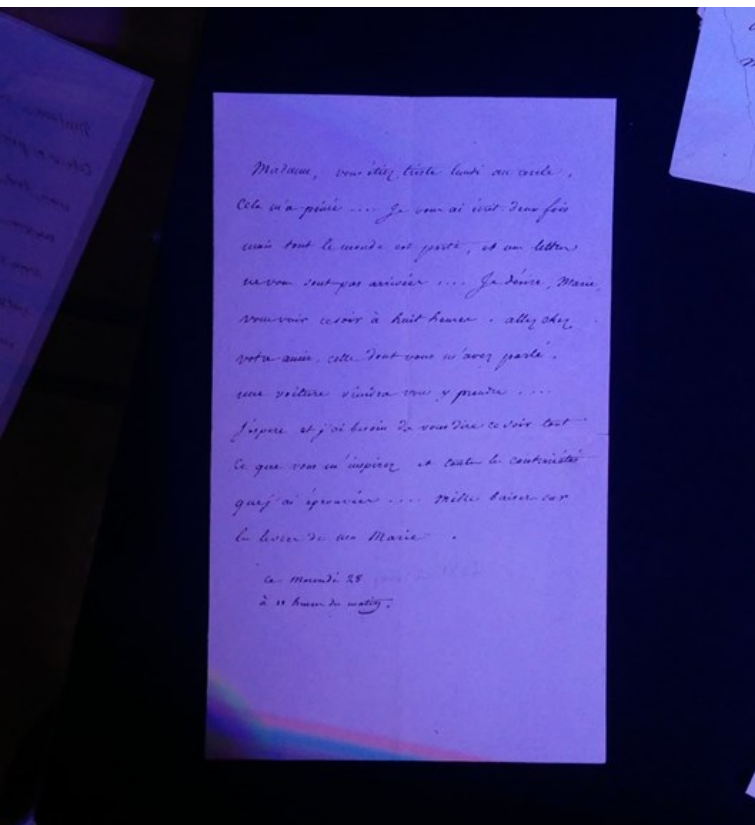 Madame, vous étiez triste lundi au cercle,
Cela m'a peiné .... Je vous ai écrit deux fois
mais tout le monde est parti, et mes lettres
ne vous sont pas arrivées .... Je désire, Marie,
vous voir ce soir à huit heures. allez chez
votre amie, celle dont vous m'avez parlé.
une voiture viendra vous y prendre ....
J'espère et j'ai besoin de vous dire ce soir tout
ce que vous m'inspirez et toutes les contrariétés
que j'ai éprouvées .... Mille baisers sur
les lèvres de ma Marie.
ce mercredi 28
à 11 heures du matin.